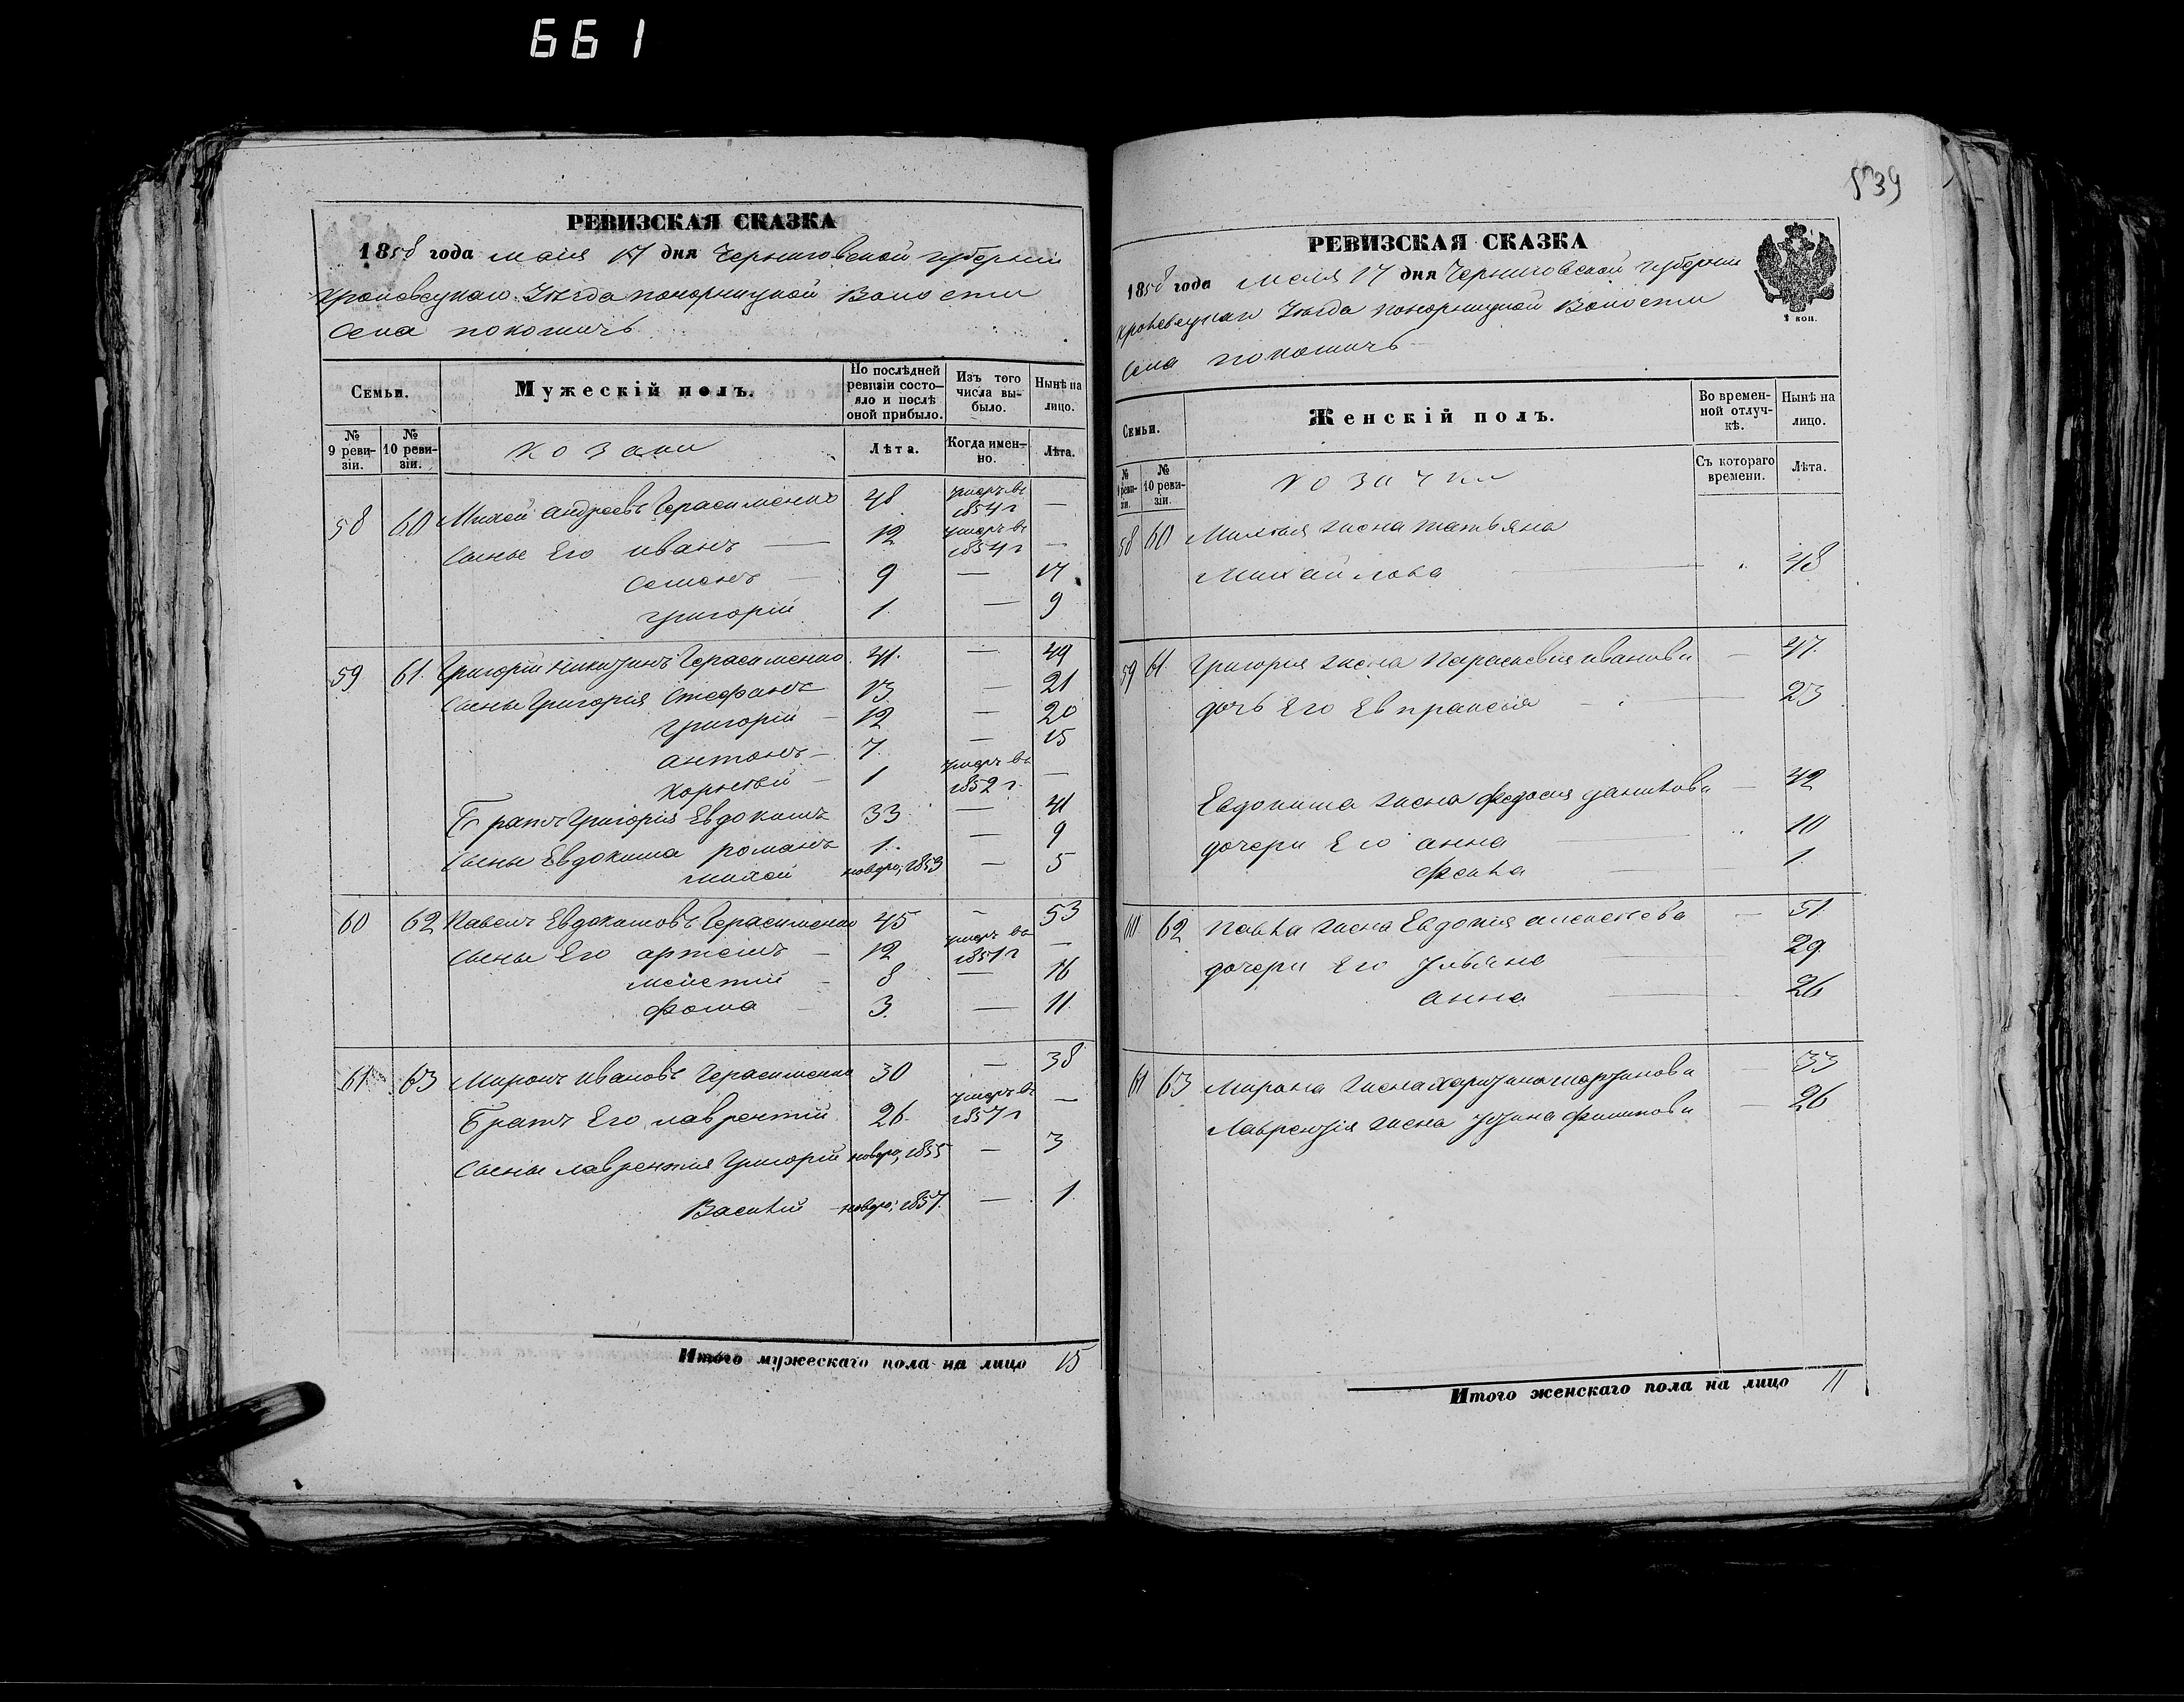 661
РЕВИЗСКАЯ СКАЗКА
1858 года маія 17 дня Черниговской губерніи
Кролевецкаго Уезда понорницкой Волости
Села покошичь
Семьи.
Мужескій полъ.
По послѣдней ревизіи состояло и послѣ оной прибыло.
Изъ того числа выбыло.
Нынѣ на лицо.
№ 9 ревизіи.
№ 10 ревизіи.
козаки
Лѣта.
Когда именно.
Лѣта.
58 60 Михей андреевъ Герасименко 48 умеръ въ 1854 г —
сыны Его иванъ — 12 умеръ въ 1854 г —
Семенъ — 9 — 17
григорій 1 — 9
59 61. Григорій никитинъ Герасименко 41. — 49
сыны Григорія Стефанъ 13 — 21
григорій — 12 — 20
антонъ — 7. — 15
корнѣй — 1 умеръ въ 1852 г. —
Братъ Григорія Евдокимъ 33 — 41
сыны Евдокима романъ 1. — 9
михей новоро; 1853 — 5
60 62 Павелъ Евдокимовъ Герасименко 45 — 53
сыны Его артемъ — 12 умеръ въ 1851 г —
8 — 16
фома 3. — 11
61 63 Миронъ ивановъ Герасименко 30 — 38
Братъ Его лаврентій 26. умеръ въ 1857 г —
Сыны лаврентия Григорій новоро; 1855 — 3
Василій новоро; 1857. — 1
Итого мужескаго пола на лицо 15
539
РЕВИЗСКАЯ СКАЗКА
1858 года маія 17 дня Черниговской губерніи
кролевецкаго Уезда понорницкой Волости
Села покошичь
1 коп.
Семьи.
Женскій полъ.
Во временной отлучкѣ.
Нынѣ на лицо.
№ 9 ревизіи.
№ 10 ревизіи.
козачки
Съ котораго времени.
Лѣта.
58 60 Михея жена татьяна
Михайлова — 48
59 61 Григория жена Параскевія иванова — 47.
дочь Его Евпраксія — 23
Евдокима жена федосия данилова — 42
дочери Его анна — 10
фекла 1
60 62 Павла жена Евдокия алексеева — 51
дочери Его Ульяна 29
анна 26
61 63 Мирона жена харитина мартинова — 33
Лаврентія жена Устина филипова — 26
Итого женскаго пола на лицо 11